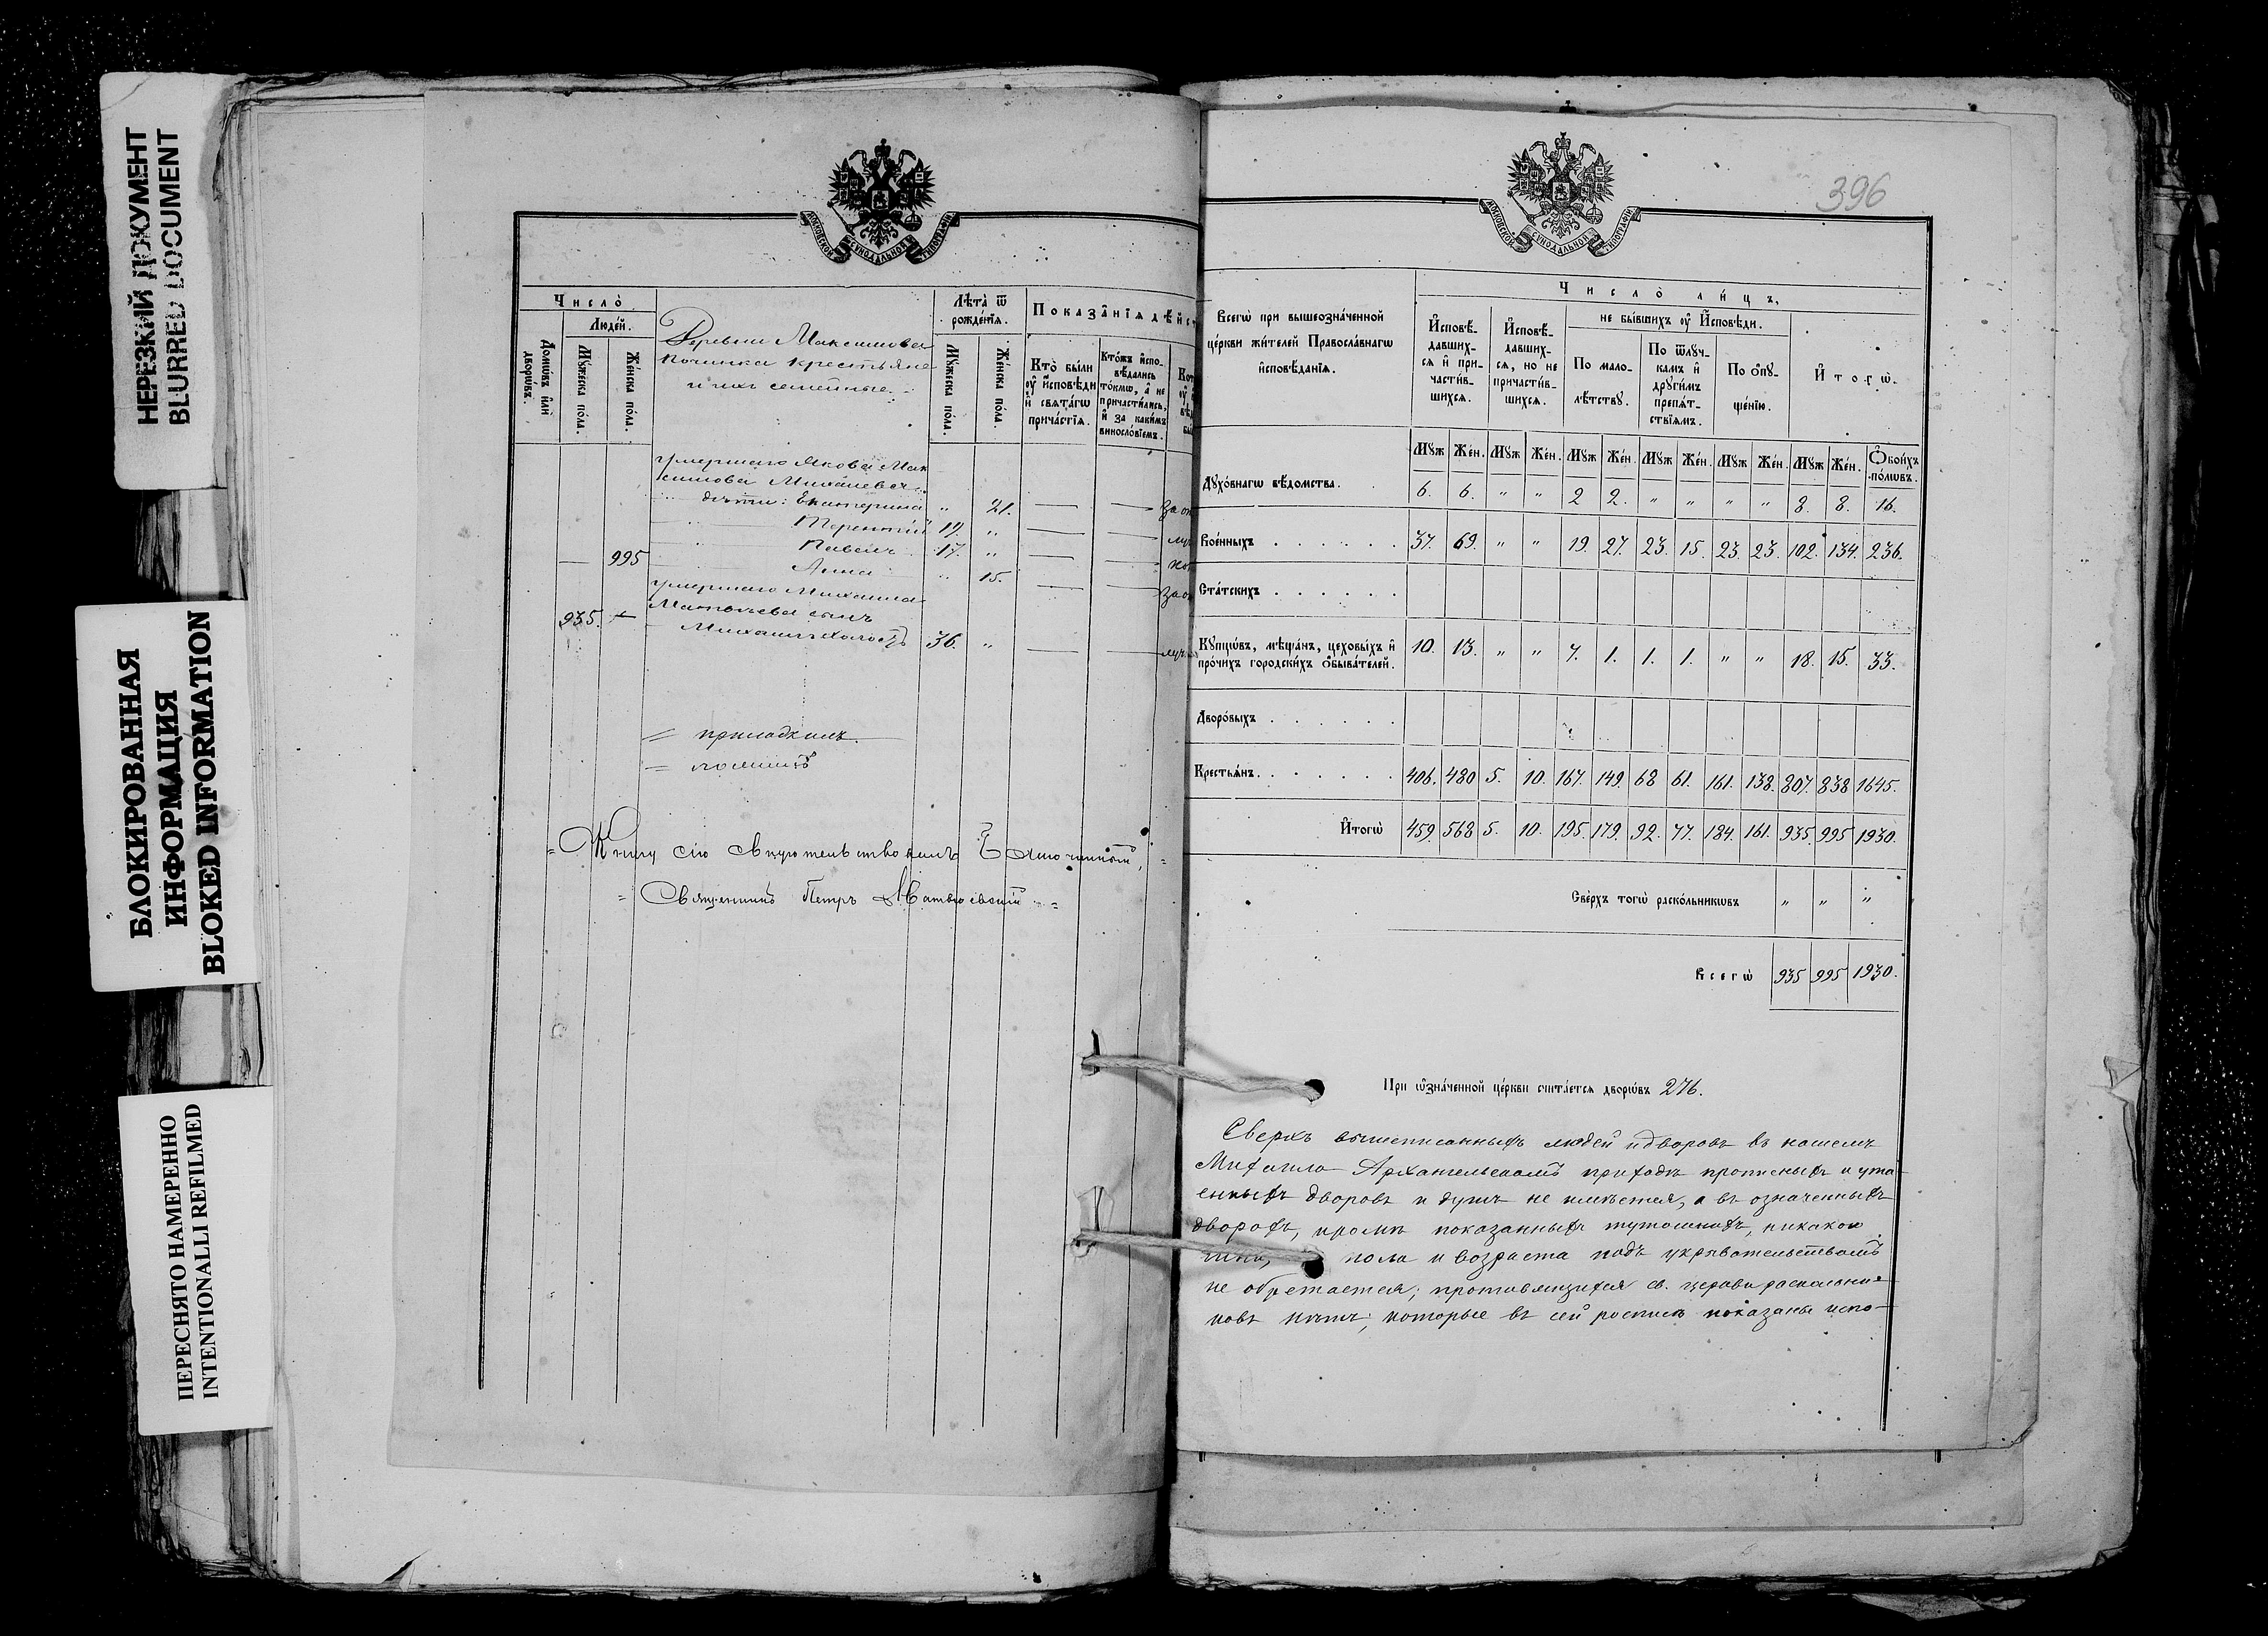 НЕРЕЗКИЙ ДОКУМЕНТ
BLURRED DOCUMENT
БЛОКИРОВАННАЯ
ИНФОРМАЦИЯ
BLOKED INFORMATION
ПЕРЕСНЯТО НАМЕРЕННО
INTENTIONALLI REFILMED
МОСКОВСКОЙ СѴНОДАЛЬНОЙ ТИПОГРАФІИ
Число̀
Люде́й.
Домѡ́въ и҆лѝ дворѡ́въ.
Мꙋ́жеска по́ла.
Же́нска по́ла.
Деревни Максимова
Починка крестьяне
и ихъ семейные.
Лѣ́та ѿ рожде́нїѧ.
Мꙋ́жеска по́ла.
Же́нска по́ла.
Показа̑нїѧ дѣйст
Кто̀ бы́ли оу҆ и҆́сповѣди и҆ свѧта́гѡ прича́стїѧ.
Кто́жъ и҆спо-
вѣ́дались
то́кмѡ, а҆ не
причасти́лись,
и҆ за каки́мъ
винослові́емъ.
умершаго Якова Мак
симова Михалева
дѣти: Екатерина " 21. — —
Терентій 19. " — —
Павелъ 17. " — —
— 995 Анна " 15. — —
умершаго Михаила
Матвѣева сынъ
935. — Михаилъ холостъ 36. " — —
Книгу сію свидѣтельствовалъ Благочинный,
Священникъ Петръ
396
МОСКОВСКОЙ СѴНОДАЛЬНОЙ ТИПОГРАФІИ
Всегѡ̀ при вышеозна́ченной
це́ркви жи́телей Правосла́внагѡ
и҆сповѣ́данїѧ.
Число̀ ли́цъ,
И҆сповѣ́-
давших-
сѧ и҆ при-
части́в-
шихсѧ.
И҆сповѣ́-
давших-
сѧ, но не
причасти́в-
шихсѧ.
не бы́вшихъ оу҆ И҆́сповѣди.
По мало-
лѣ́тствꙋ.
По ѿлꙋ́ч-
камъ и҆
дрꙋги́мъ
препѧ́т-
ствїѧмъ.
По ѻ҆пꙋ-
ще́нїю.
И҆того̀.
Мꙋж Же́н. Мꙋж Же́н. Мꙋж Же́н. Мꙋж Же́н. Мꙋж Же́н. Мꙋж Же́н. Ѻ҆бои́хъ по́лѡвъ.
Дꙋхо́внагѡ вѣ́домства. 6. 6. " " 2 2. " " " " 8. 8. 16.
Вое́нныхъ 37. 69. " " 19. 27. 23. 15. 23. 23. 102. 134. 236.
Ста́тскихъ
Кꙋпцѡ́въ, мѣща́нъ, цеховы́хъ и҆
про́чихъ городски́хъ ѻ҆быва́телей. 10. 13. " " 7. 1. 1. 1. " " 18. 15. 33.
Дворо́выхъ
Крестьѧ́нъ 406. 480 5. 10. 167. 149. 68 61. 161. 138. 807. 838 1645.
И҆того̀ 459. 568 5. 10. 195. 179. 92. 77. 184. 161. 935. 995 1930.
Све́рхъ тогѡ̀ раско́льникѡвъ " " "
Всегѡ̀ 935 995 1930.
При ѡ҆зна́ченной це́ркви счита́етсѧ дворѡ́въ 276.
Сверхъ вышеписанныхъ людей и дворовъ въ нашемъ
Михаило Архангельскомъ приходѣ прописныхъ и ута
енныхъ дворовъ и душъ не имѣется, а въ означенныхъ
дворахъ, кромѣ показанныхъ тутошнихъ, никакого
чина, пола и возраста подъ укрывательствомъ
не обретается; противящихся св. церкви раскольни-
ковъ нѣтъ; которые въ сей росписи показаны испо-